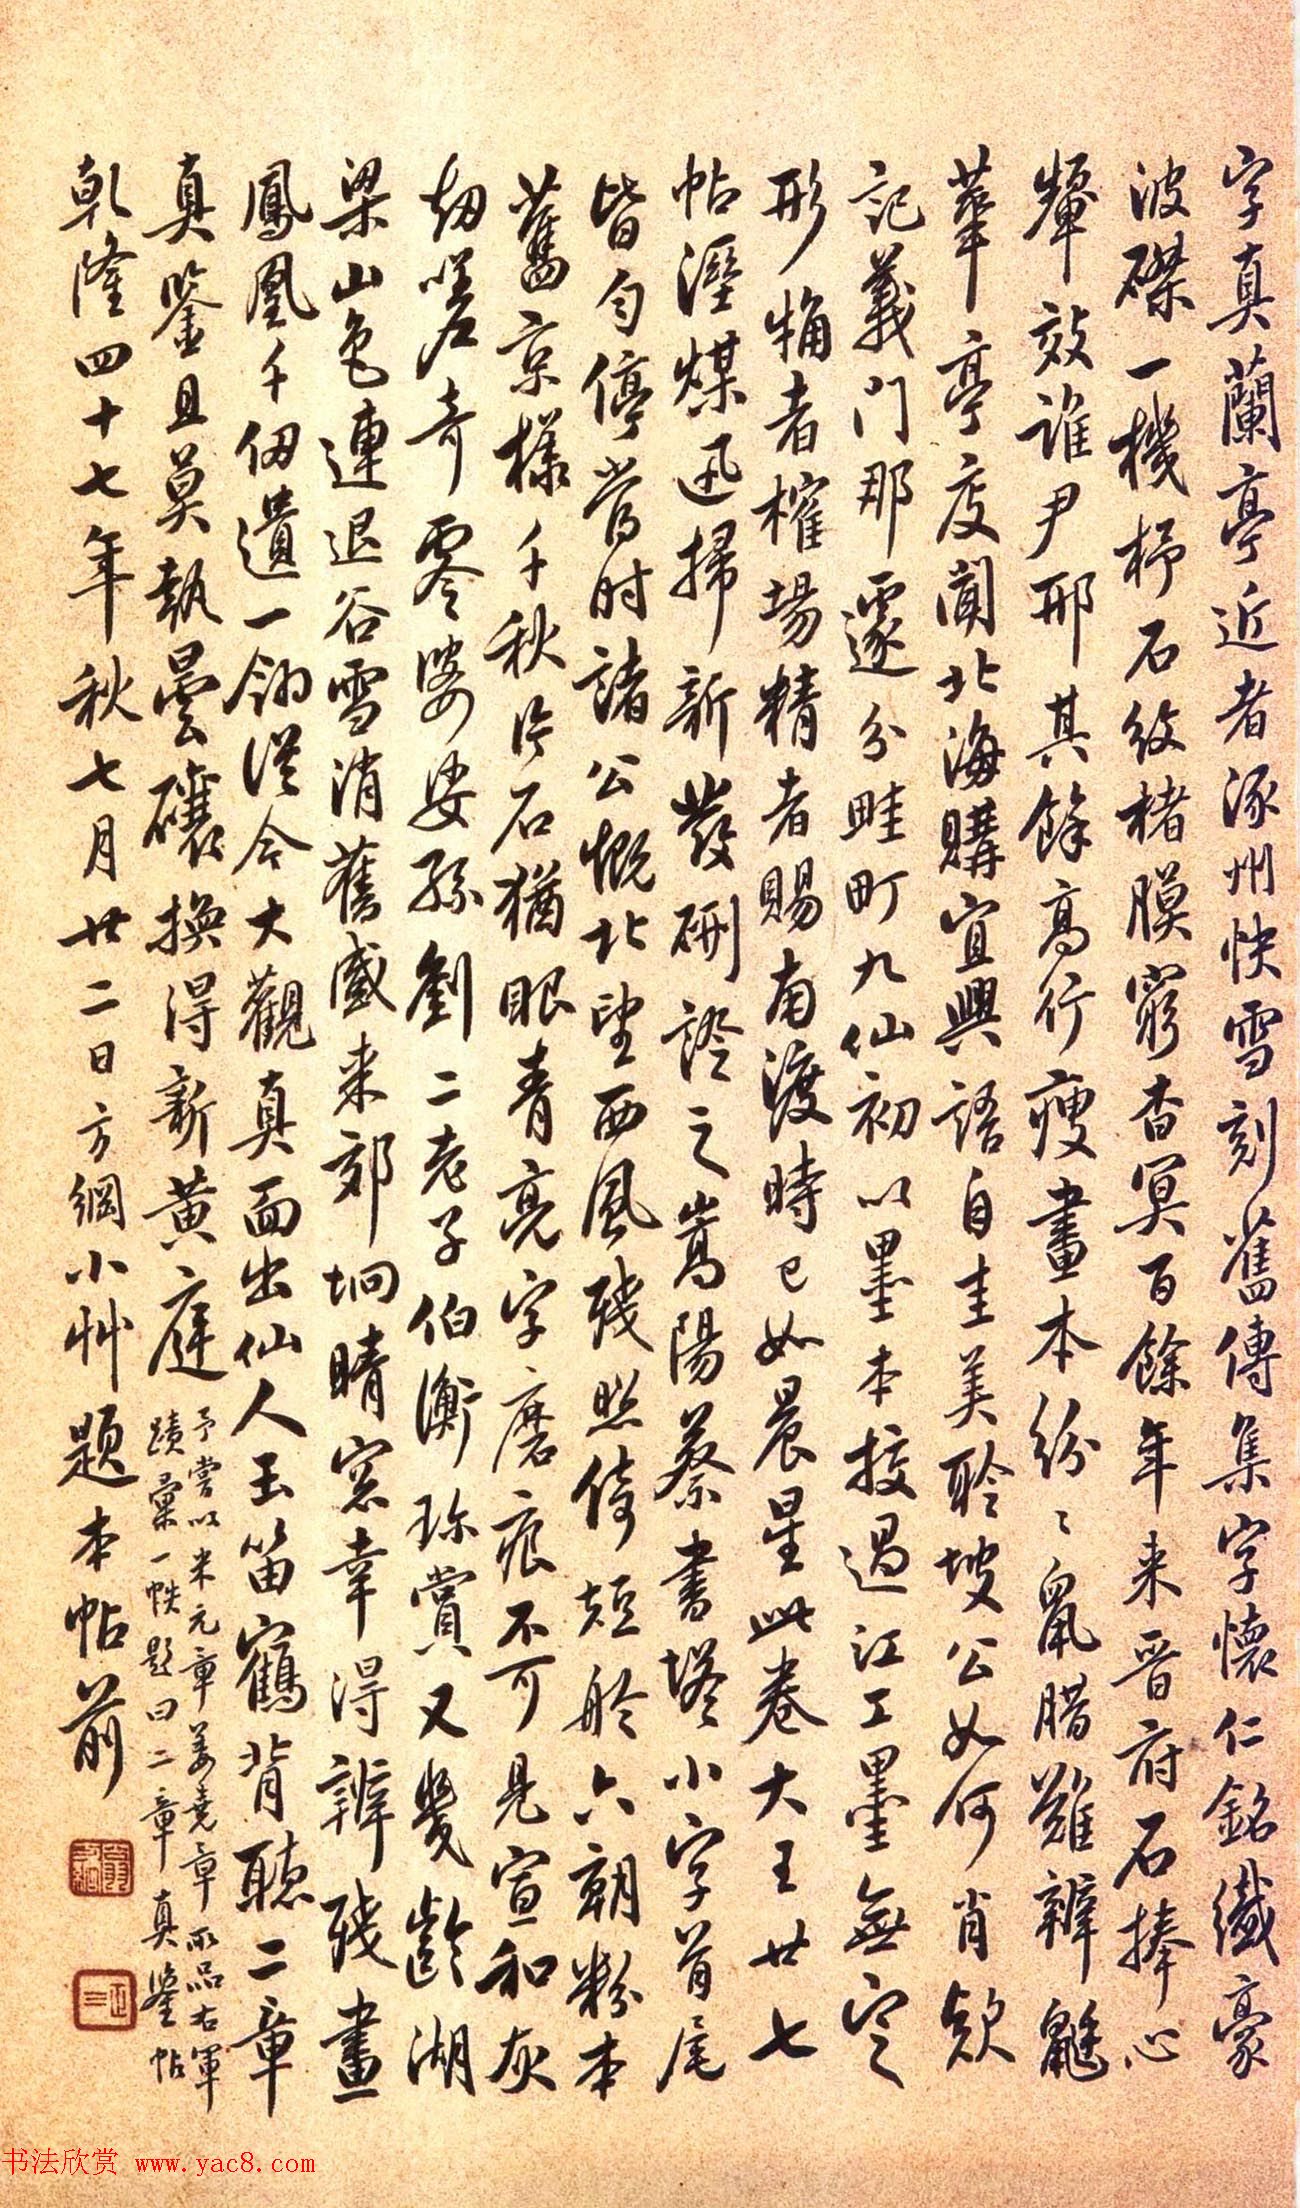 字真蘭亭近者涿州快雪刻舊傳集字懷仁銘纖豪
波磔一機杼石紋楮膜窮杳冥百餘年来晋府石捧心
顰效誰尹邢其餘高行瘦畫本紛〻鼠腊難辨鼮
華亭度閣北海購宜興語自圭美聆坡公如何肖欵
記義門那遽分畦町九仙初以墨本挍過江工墨無定
形桷者榷場精者賜南渡時已如晨星此卷大王廿七
帖溼煤迅掃新發硎證之嵩陽蔡書塔小字首尾
皆勻停當时諸公慨北望西風残照倚短舲六朝粉本
舊京樣千秋片石猶眼青亮字磨痕不可見宣和灰
劫嗟奇零婆娑孫劉二老子伯衡珎賞又幾齡湖
梁山色連退谷雪消舊感来郊坰晴窓幸得辨残畫
鳳凰千仞遺一翎從今大觀真面出仙人玉笛鶴背聽二章
真鑒且莫執曇礲換得新黄庭
予嘗以米元章姜堯章所品右軍
蹟彙一帙題曰二章真鑒帖
乾隆四十七年秋七月廿二日方綱小艸題本帖前
书法欣赏 www.yac8.com